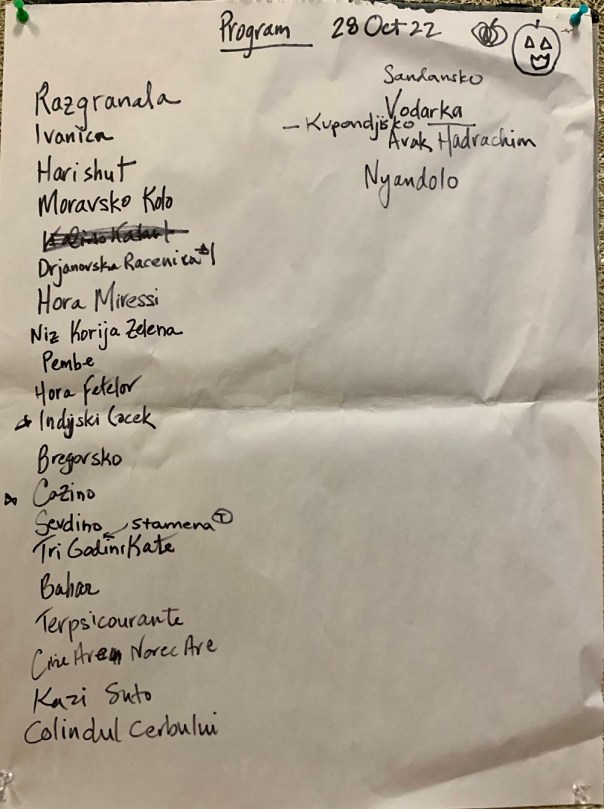 Program 28 Oct 22
Razgranala
Ivanica
Harishut
Moravsko Kolo
Drjanovska Racenica #1
Hora Miressi
Niz Korija Zelena
Pembe
Hora Fetelor
Indijski Cocek
Bregorsko
Cozino
Sevdino stamena T
Tri Godini Kate
Bahar
Terpsicourante
Norec Are
Kazi Suto
Colindul Cerbului
Sandansko
Vodarka
- Kupondjisko
Avak Hadrachim
Nyandolo